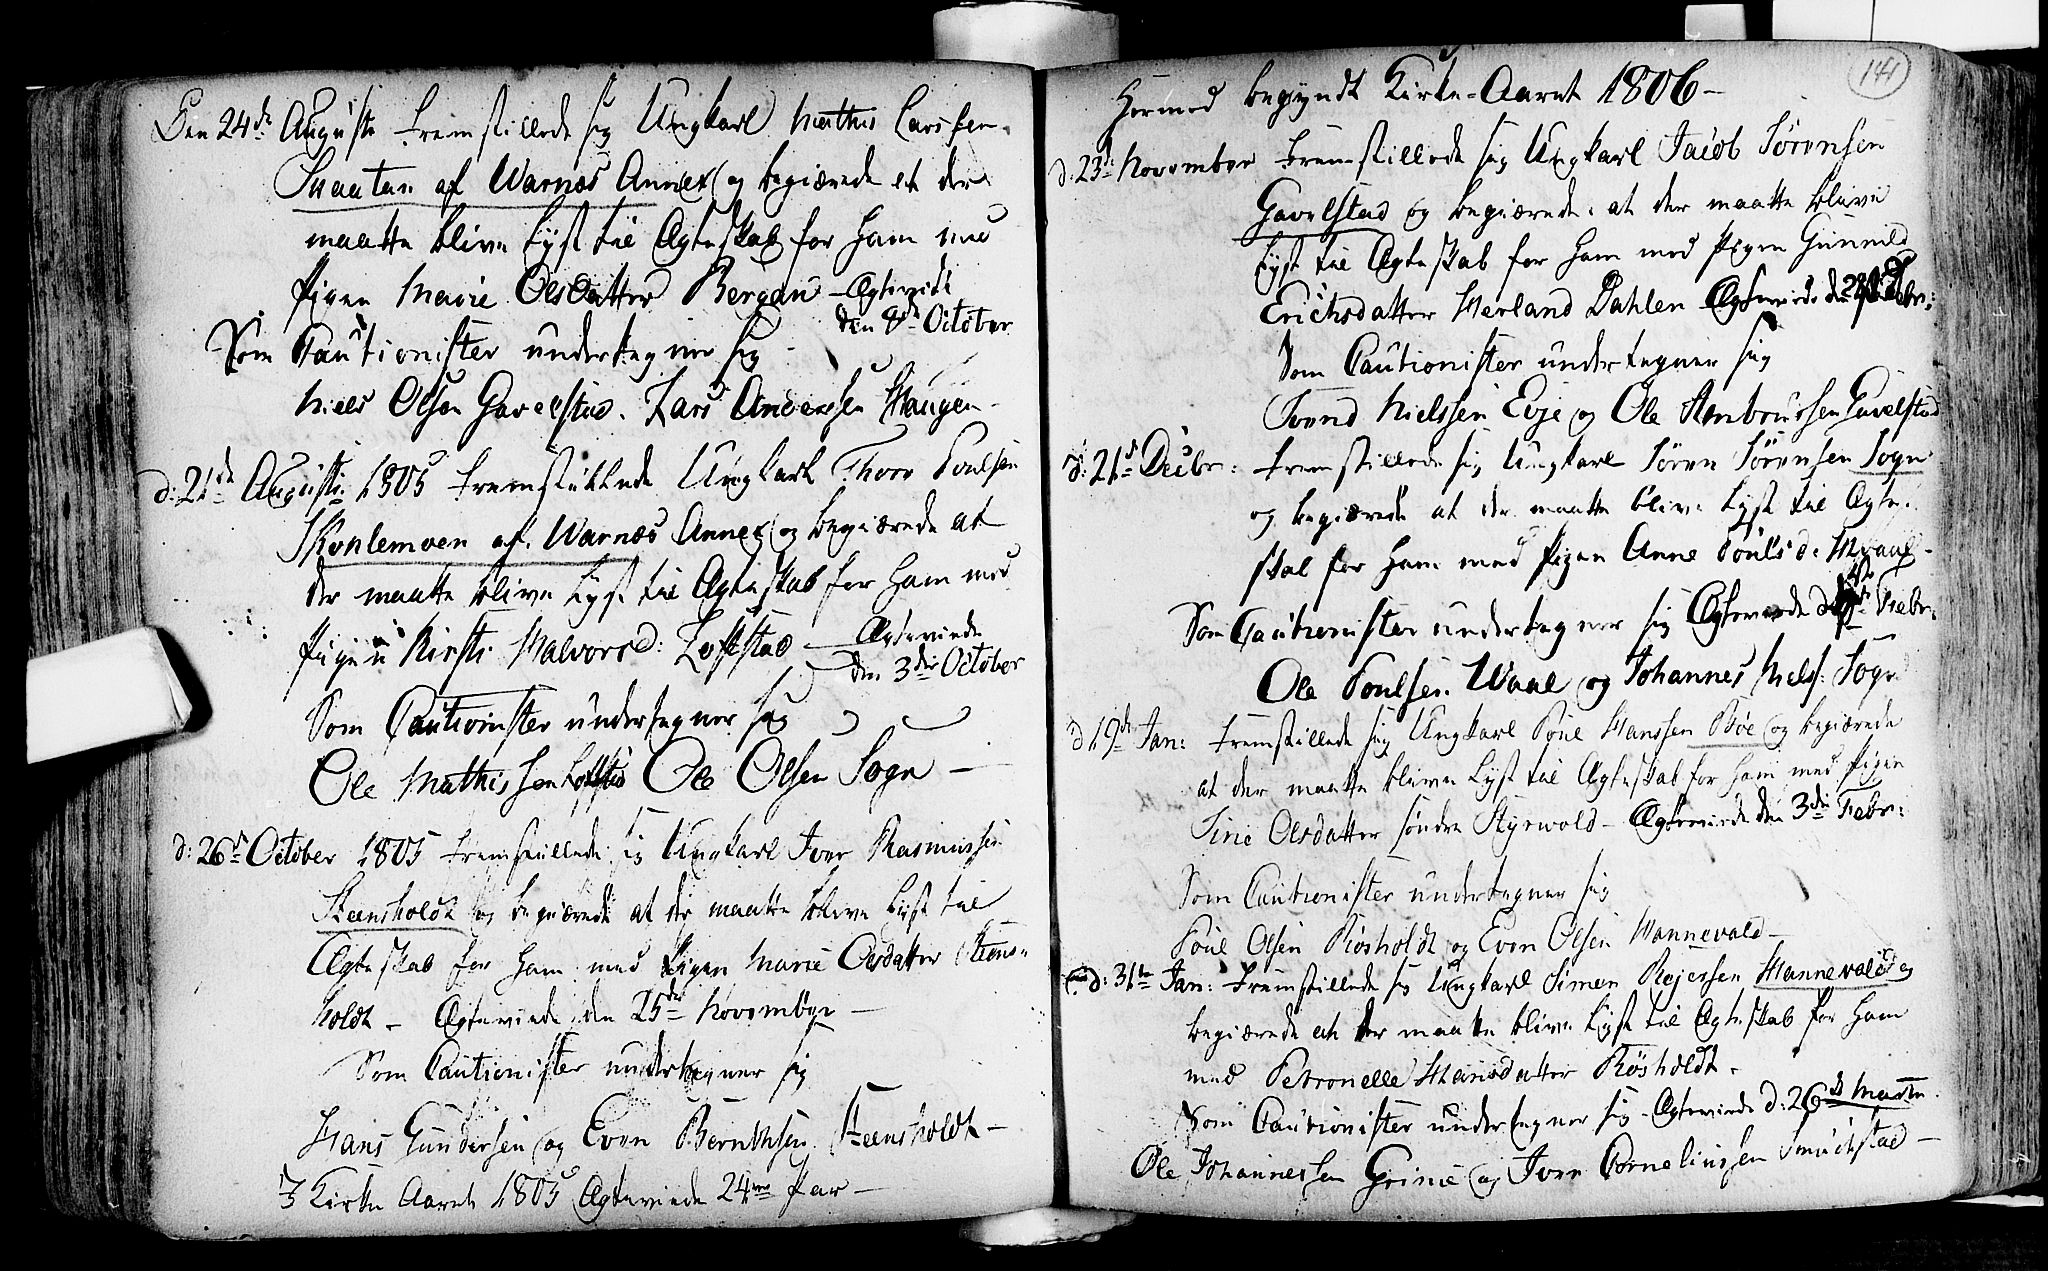 Den 24de Augusti fremstillede sig Ungkarl Mathis Larssen
Skaatan af Warnæs Annex og begiærede at der
maatte blive Lyst til Ægteskab for Ham med
Pigen Marie Olsdatter Bergan — Ægteviede
den 8de October
Som Cautionister undertegner sig
Niels Olsen Gavelstad. Lars Andersen Haugen
d: 21de Augusti 1805 fremstillede Ungkarl Thore Poulsen
af Warnæs Annex og begiærede at
der maatte blive Lyst til Ægteskab for Ham med
Pigen Kirsti Halvorsd: Lofstad — Ægteviede
den 3die October
Som Cautionister undertegner sig
Ole Mathissen Lofstad Ole Olsen Sogn —
d: 26de October 1805 fremstillede sig Ungkarl Iver Rasmussen
Steensholdt og begiærede at der maatte blive Lyst til
Ægteskab for Ham med Pigen Marie Olsdatter Steens-
holdt — Ægteviede den 25de November —
Som Cautionister undertegner sig
Hans Gundersen og Even Bernthsen Steensholdt —
I Kirke Aaret 1805 Ægteviede 24re Par —
141
Hermed begyndt Kirke-Aaret 1806 —
d: 23de November fremstillede sig Ungkarl Jacob Sørensen
Gavelstad og begiærede at der maatte blive
Lyst til Ægteskab for Ham med Pigen Gunnild
Erichsdatter Herland Dahlen Ægteviede den Febr:
Som Cautionister undertegner sig
Svend Nielssen Evje og Ole Ambrussen Gavelstad
d: 21de Decbr: fremstillede sig Ungkarl Søren Sørensen Sogn
og begiærede at der maatte blive Lyst til Ægte-
skab for Ham med Pigen Anne Poulsd:
Som Cautionister undertegner sig Ægteviede d: Febr:
Ole Poulsen Waae og Johannes Niels: Sogn
d 19de Jan: fremstillede sig Ungkarl Poul Hanssen Bøe og begiærede
at der maatte blive Lyst til Ægteskab for Ham med Pigen
Sirie Olsdatter søndre Styrvold — Ægteviede den 3die Febr:
Som Cautionister undertegner sig
Poul Olsen Røsholdt og Even Olsen Hannevald —
d: 31te Jan: fremstillede sig Ungkarl Simen Rejersen Hannevald og
begiærede at der maatte blive Lyst til Ægteskab for Ham
med Petronelle Hansdatter Røsholdt —
Som Cautionister undertegner sig — Ægteviede d: 26de Martii
Ole Johannessen Grime og Iver Cornelinssen Smuchstad —